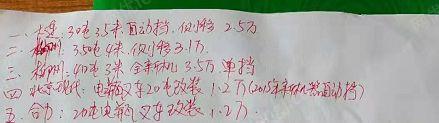 一、大连、30吨3.5米、自动挡、仅小修 2.5万
二、柳州、35吨4米、仅小修 3.1万
三、柳州、40吨3米 全新机 3.5万、单挡
四、北京现代、电瓶叉车20吨改装、1.2万(2015年新机器自动挡)
五、合力：20吨电瓶叉车改装、1.2万、